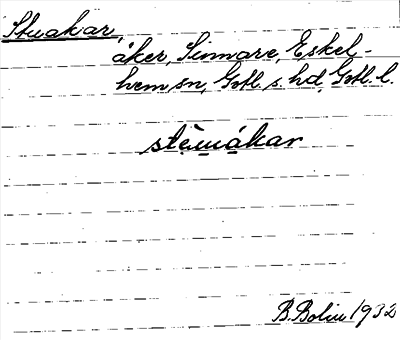 Stuakar,
åker, Simmare, Eskel-
hem sn, Gotl. s. hd, Gotl. l.
stèu̯ákar
B. Bolin 1932